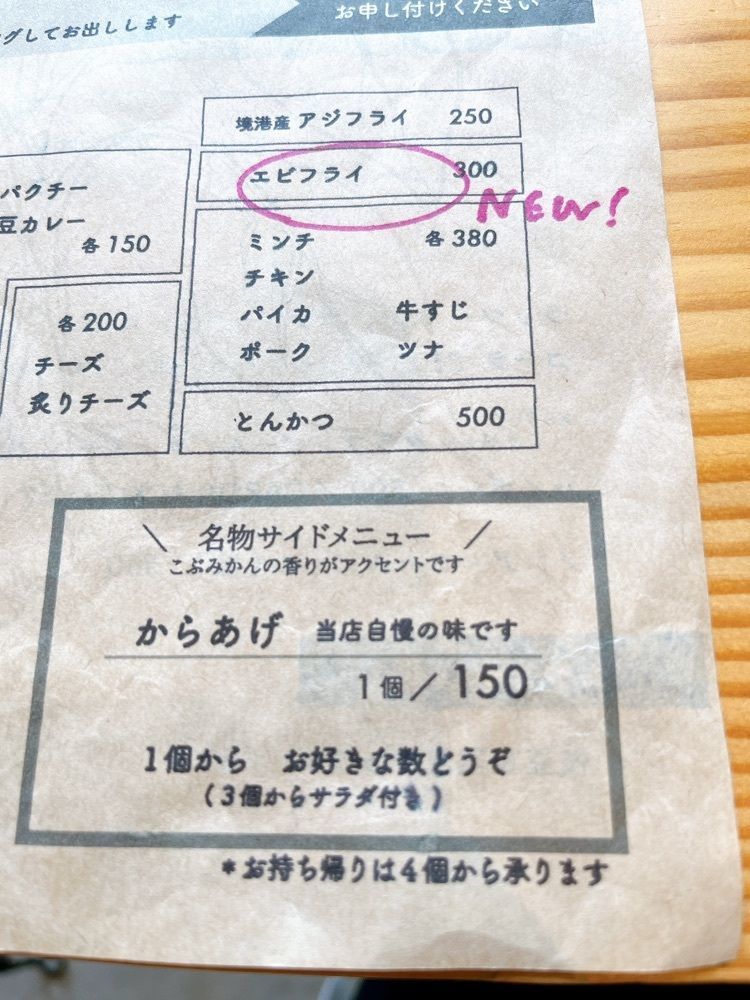 グしてお出しします
お申し付けください
境港産 アジフライ 250
エビフライ 300
NEW!
パクチー
豆カレー
各150
各200
チーズ
炙りチーズ
ミンチ 各380
チキン
パイカ 牛すじ
ポーク ツナ
とんかつ 500
＼ 名物サイドメニュー ／
こぶみかんの香りがアクセントです
からあげ 当店自慢の味です
1個／150
1個から お好きな数どうぞ
（3個からサラダ付き）
*お持ち帰りは4個から承ります